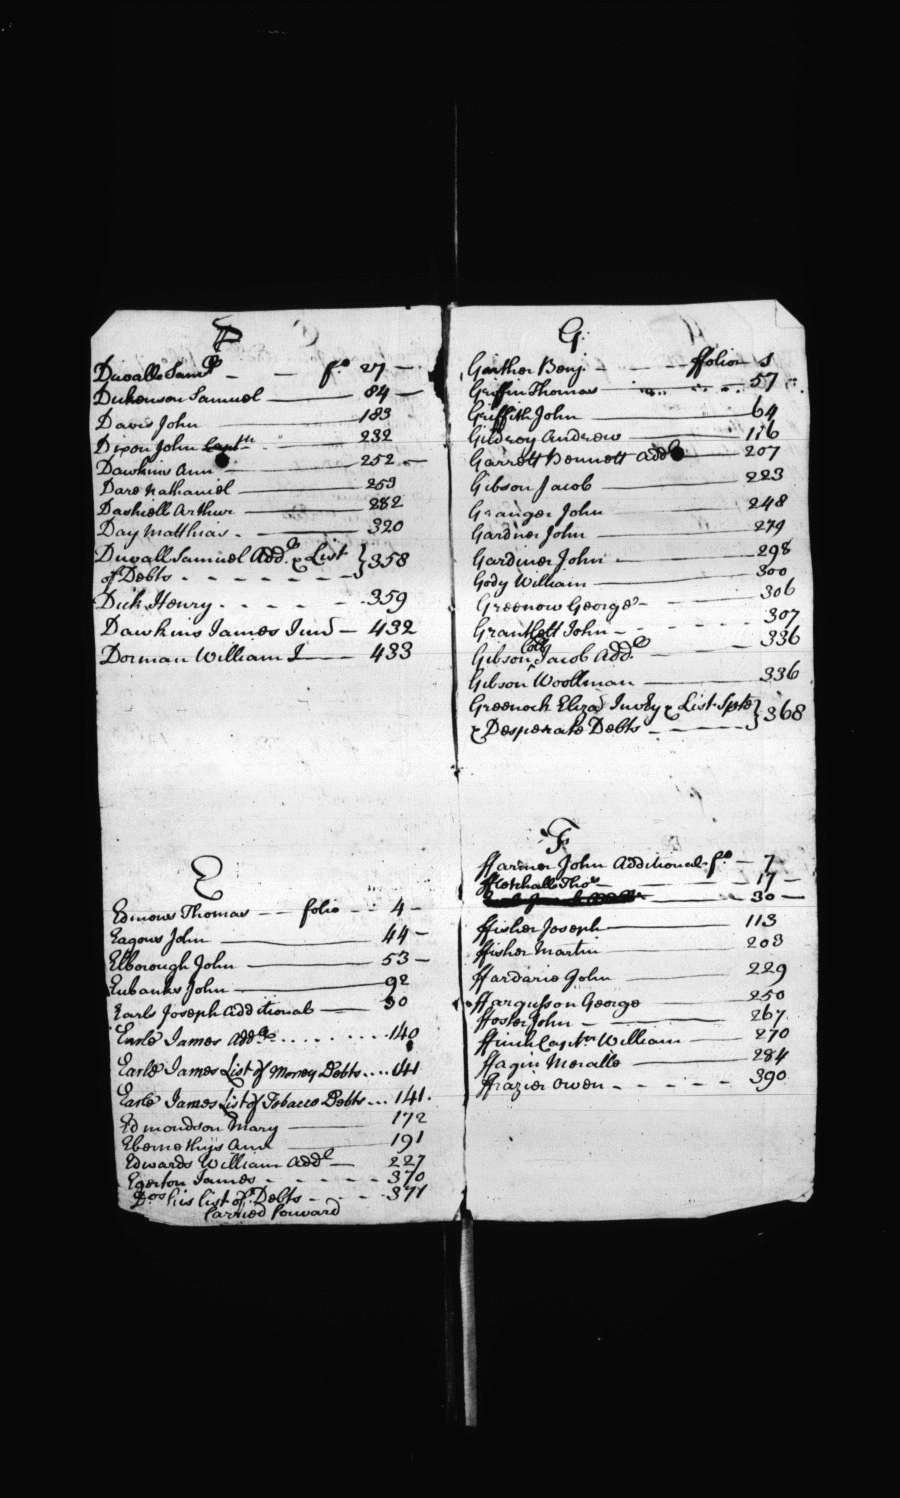 D
Duvall Saml. - - fo. 27
Dickenson Samuel 84
Davis John 183
Dixon John Captn. 232
Dawkins Ann 252
Dare Nathaniel 253
Dashiell Arthur 282
Day Matthias 320
Duvall Samuel Addl. & List
of Debts } 358
Dick Henry 359
Dawkins James Junr 432
Dorman William 433
E
Edmons Thomas folio 4
Eagons John 44
Elborough John 53
Eubanks John 92
Earls Joseph Additional 30
Earle James Addl. 140
Earle James List of Money Debts 141
Earle James List of Tobacco Debts 141
Edmondson Mary 172
Ebernethys Ann 191
Edwards William Addl 227
Egerton James 370
Dos his list of Debts 371
Carried forward
G
Ganther Benj. folio 1
Griffin Thomas 57
Griffith John 64
Gildroy Andrew 116
Garrott Bennett Addl 207
Gibson Jacob 223
Granger John 248
Gardner John 279
Gardiner John 298
Gody William 300
Greenow George 306
John 307
Gibson Jacob Addl. 336
Gibson Woollman 336
Greenock Eliza Invty & List Spte
& Desperate Debts } 368
F
ffarmer John Additional fo. 7
Thos 17
30
ffisher Joseph 113
ffisher Martin 203
ffardarie John 229
ffargusson George 250
ffoster John 267
Captn William 270
ffagin 284
ffrazier Owen 390